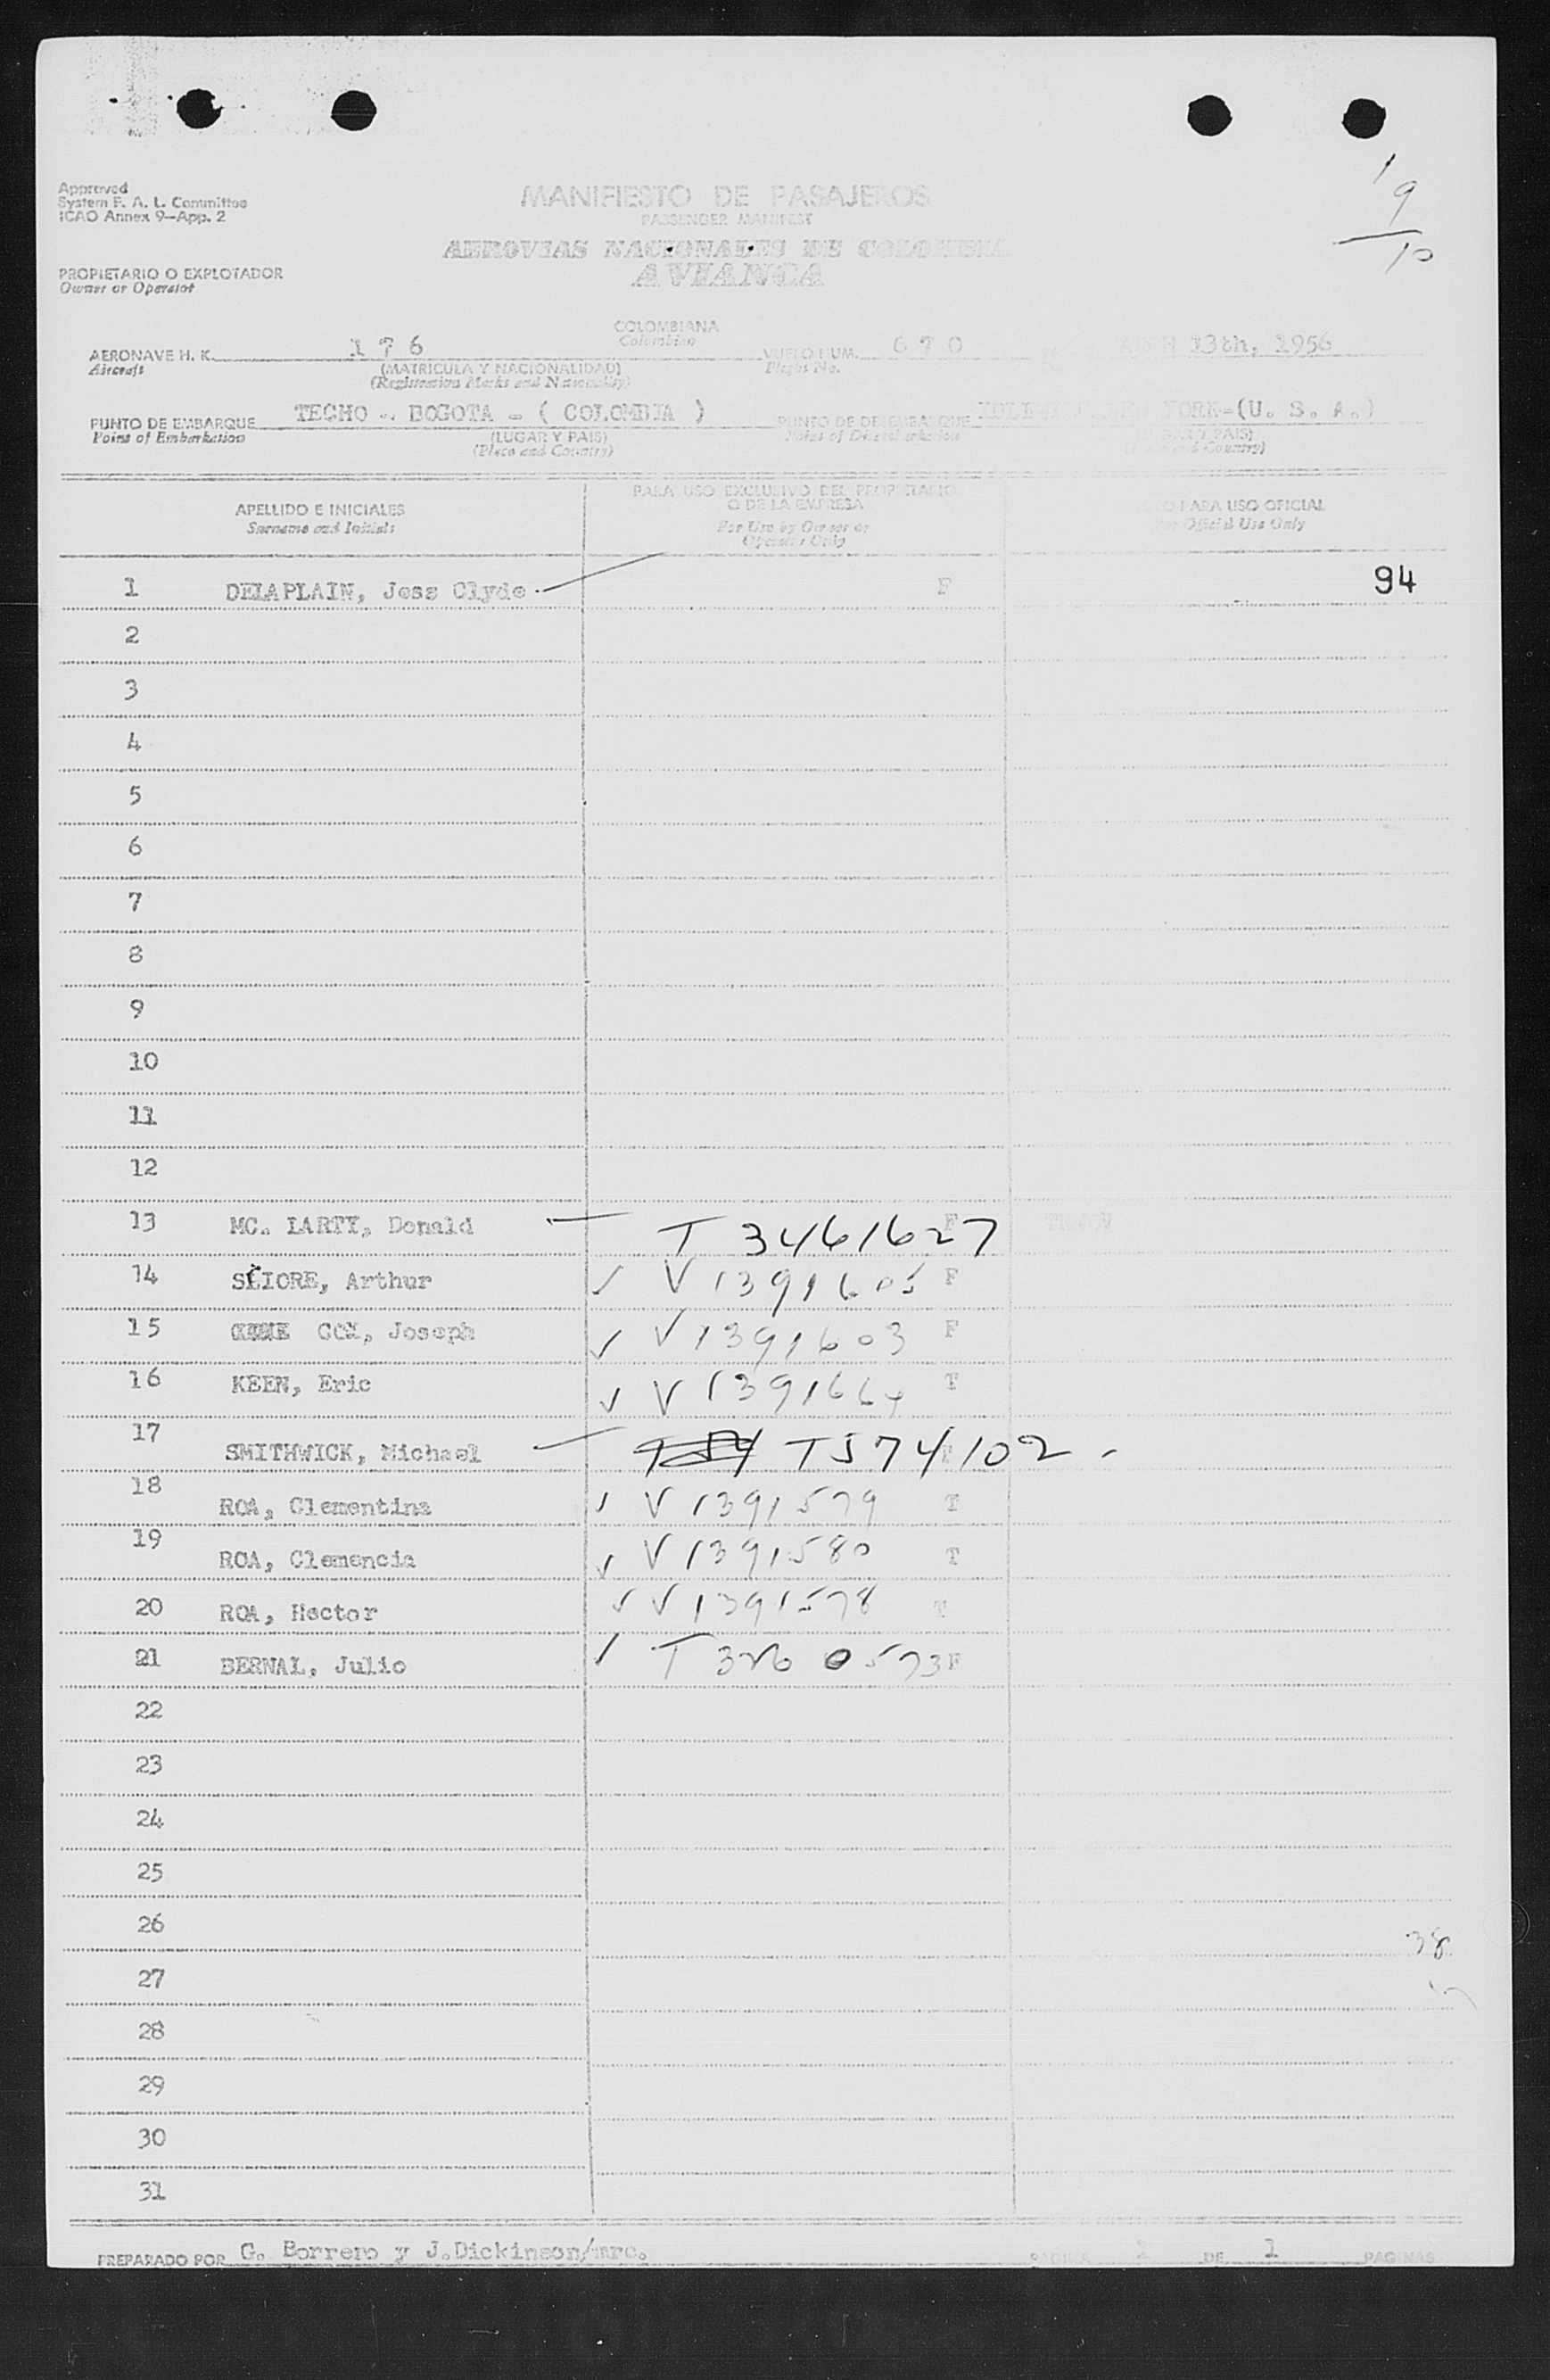 1
9
10
Approved
System F. A. L. Committee
ICAO Annex 9—App. 2
MANIFIESTO DE PASAJEROS
PASSENGER MANIFEST
AEROVIAS NACIONALES DE COLOMBIA
AVIANCA
PROPIETARIO O EXPLOTADOR
Owner or Operator
COLOMBIANA
Colombian
AERONAVE H. K. 176 VUELO NUM. 670 13th, 1956
Aircraft (MATRICULA Y NACIONALIDAD) Flight No.
(Registration Marks and Nationality)
PUNTO DE EMBARQUE TECHO - BOGOTA - ( COLOMBIA ) PUNTO DE DESEMBARQUE YORK-(U. S. A.)
Point of Embarkation (LUGAR Y PAIS) Point of Disembarkation PAIS)
(Place and Country) and Country)
APELLIDO E INICIALES
Surname and Initials
PARA USO EXCLUSIVO DEL PROPIETARIO
O DE LA EMPRESA
For Use by Owner or
Operator Only
PARA USO OFICIAL
Official Use Only
1 DELAPLAIN, Jess Clyde F 94
2
3
4
5
6
7
8
9
10
11
12
13 MC. LARTY, Donald T 3461627 F
14 Arthur ✓ V1391605 F
15 COX, Joseph ✓ V1391603 F
16 KEEN, Eric ✓ V1391664 T
17 SMITHWICK, Michael T574102 F
18 ROA, Clementina ✓ V1391579 T
19 ROA, Clemencia ✓ V1391580 T
20 ROA, Hector ✓ V1391578 T
21 BERNAL, Julio ✓ T 3260573 F
22
23
24
25
26
38
27
28
29
30
31
PREPARADO POR G. Borrero y J.Dickinson/mrc. PAGINA 1 DE 1 PAGINAS